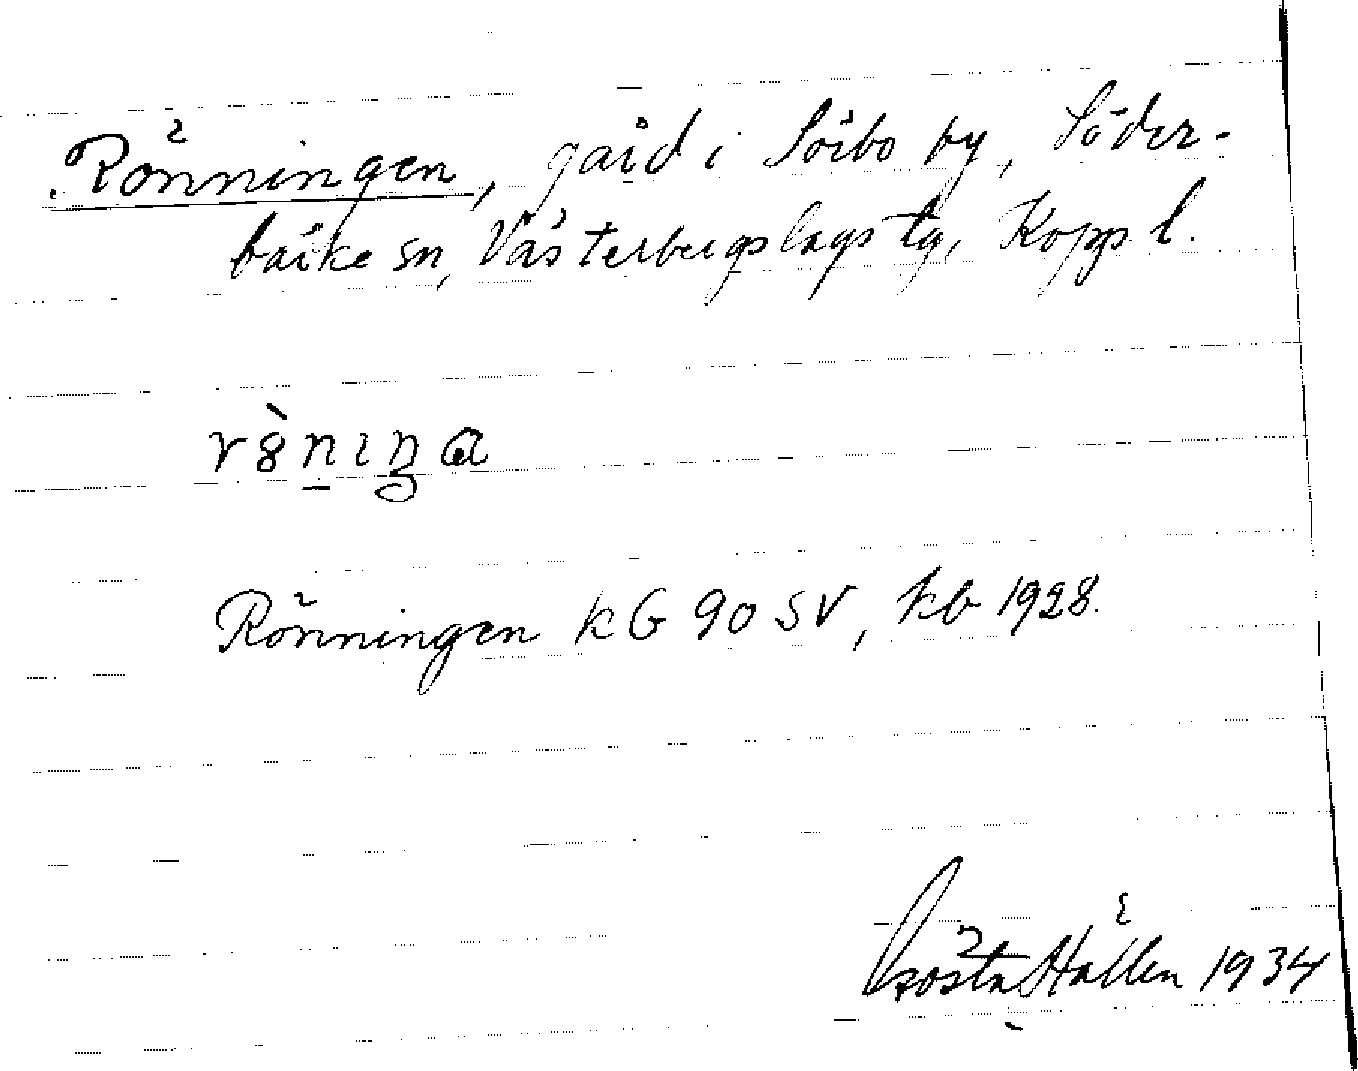 Rönningen, gård i Sörbo by, Söder-
bärke sn, Västerbergslags tg, Kopp l.
rö̀niŋa
Rönningen KG 90 SV, kb 1928.
Gösta Hållen 1934